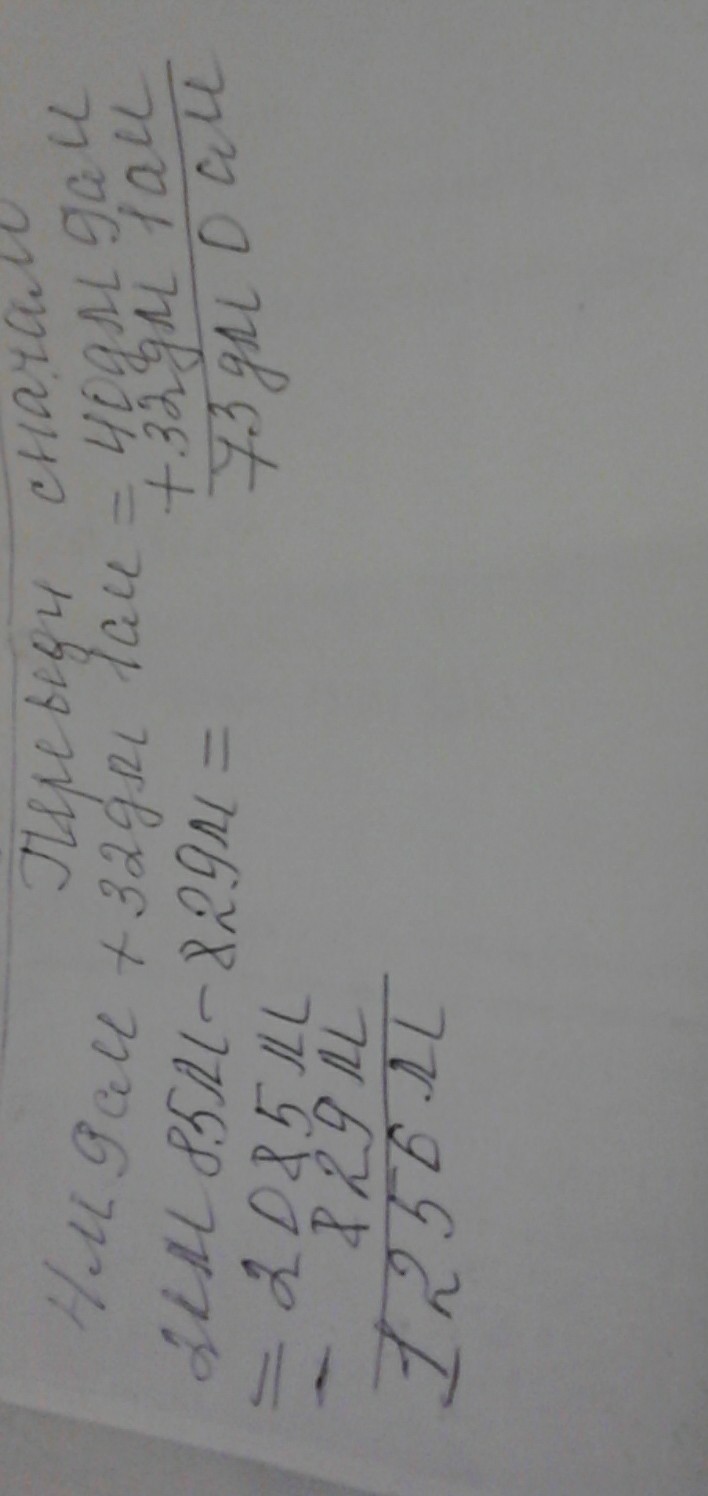 Переведи сначала
4м 9см + 32дм 1см = 40дм 9см
+32дм 1см
73дм 0см
2км 85м - 829м =
= 2085м
- 829м
1256м